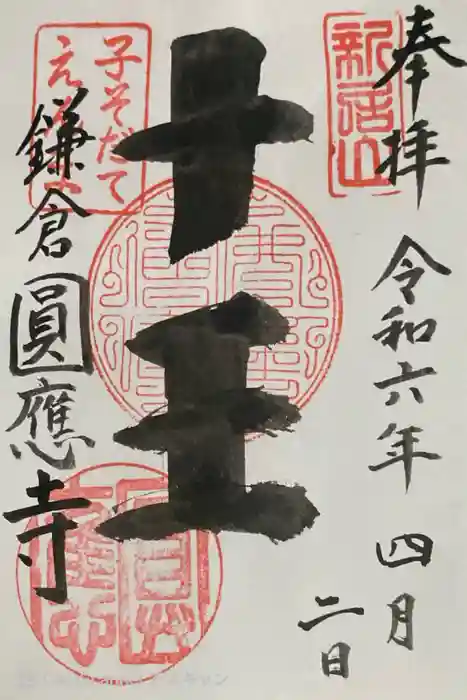 奉拝
令和六年 四月
二日
新居山
十王
子そだて
え
鎌倉圓應寺